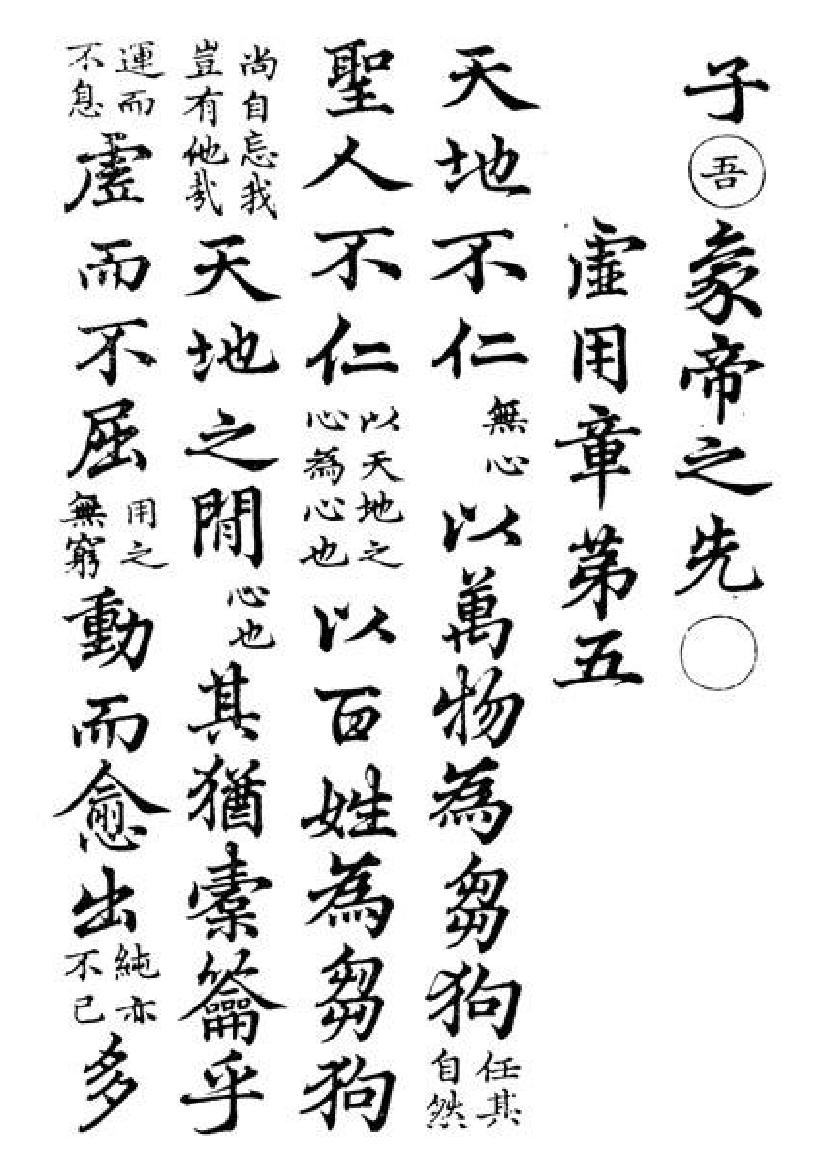 子吾象帝之先
虛用章第五
天地不仁無心以萬物為芻狗任其自然
聖人不仁以天地之心為心也以百姓為芻狗
尚自忘我豈有他哉天地之間心也其猶橐籥乎
運而不息虛而不屈用之無窮動而愈出純亦不已多